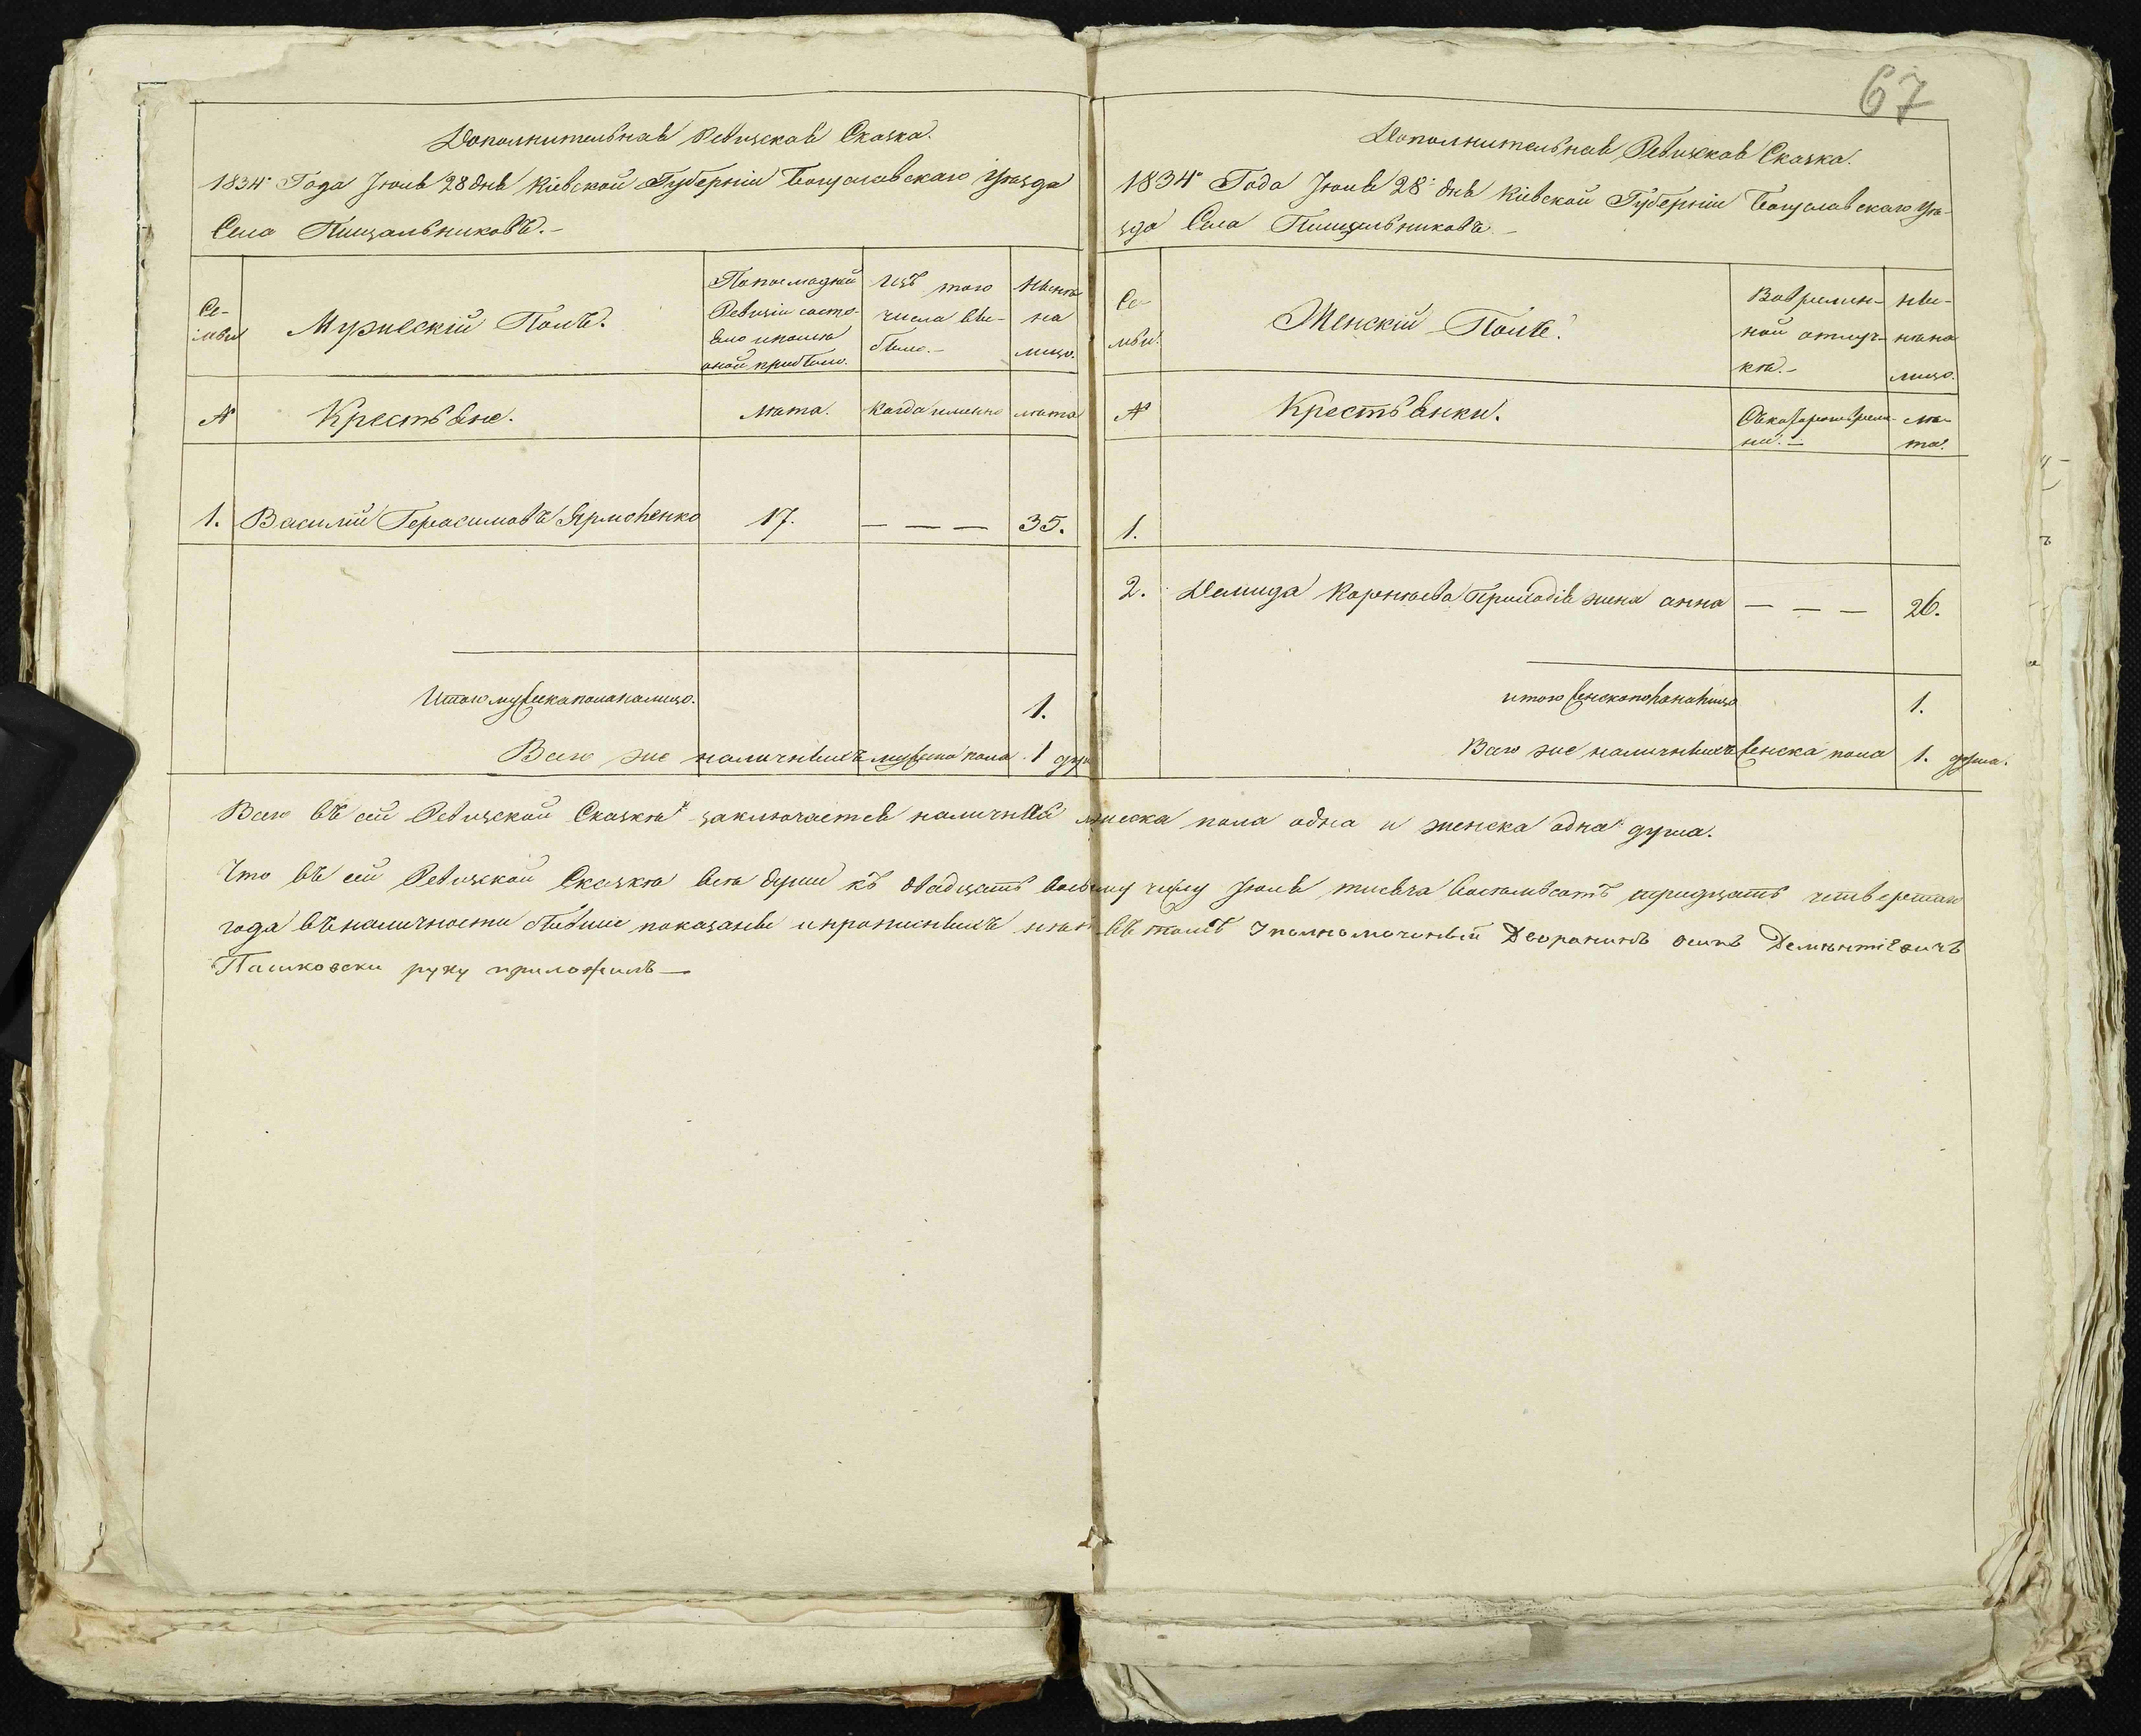 67
Дополнительная Ревизская Сказка.
1834 Года Іюля 28 дня Кіевской Губерніи Богуславскаго Уѣзда
Села Пищальниковъ.
Се-
мьи
Мужескій Полъ.
По последней
Ревизіи состо-
яло и после
оной прибыло.
Изъ того
числа вы-
было.
Нынѣ
на
лицо.
№
Крестьяне.
лета.
Когда именно
лета
1.
Василій Герасимовъ Ярмоленко
17.
— — —
35.
Итого мужеска пола налицо.
1.
Всего же наличныхъ мужеска пола
1 душ
Дополнительная Ревизская Сказка.
1834 Года Іюля 28 дня Кіевской Губерніи Богуславскаго Уѣ-
зда Села Пищальниковъ
Се-
мьи
Женскій Полъ.
Во времен-
ной отлуч-
кѣ.
Ны-
нѣ на
лицо.
№
Крестьянки.
Съ котораго време-
ни.
ле-
та.
1.
2.
Демида Корнѣева жена анна
— — —
26.
итого женска пола налицо
1.
Всего же наличныхъ женска пола
1. душа.
Всего въ сей Ревизской Сказкѣ заключается наличныхъ мужеска пола одна и женска одна душа.
Что въ сей Ревизской Сказкѣ всѣ души къ двадцать восьмому числу Іюля тысяча восемьсотъ тридцать четвертаго
года въ наличности бывшие показаны и прописныхъ нетъ въ томъ Уполномочиный Дворанинъ осипъ Демѣнтіевичъ
Пашковски руку приложилъ—